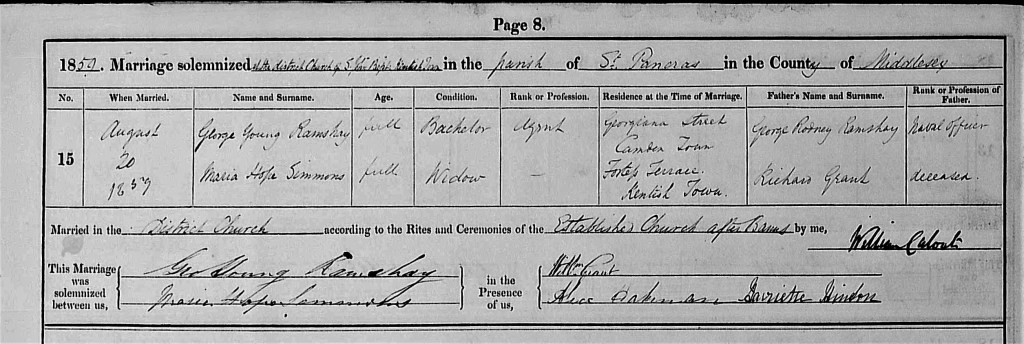 Page 8.
1859. Marriage solemnized at the district Church of St. John Bapt. Kentish Town in the parish of St. Pancras in the County of Middlesex
No. When Married. Name and Surname. Age. Condition. Rank or Profession. Residence at the Time of Marriage. Father's Name and Surname. Rank or Profession of Father.
15
August 20 1859
George Young Ramshay full Bachelor Agent Georgiana Street Camden Town George Rodney Ramshay Naval Officer
Maria Hope Simmons full Widow — Terrace. Kentish Town. Richard Grant deceased.
Married in the District Church according to the Rites and Ceremonies of the Established Church after Banns by me, William Calvert
This Marriage was solemnized between us,
Geo Young Ramshay
Maria Hope Simmons
in the Presence of us,
Wm Grant
Alice Oakman Harriette Hindon